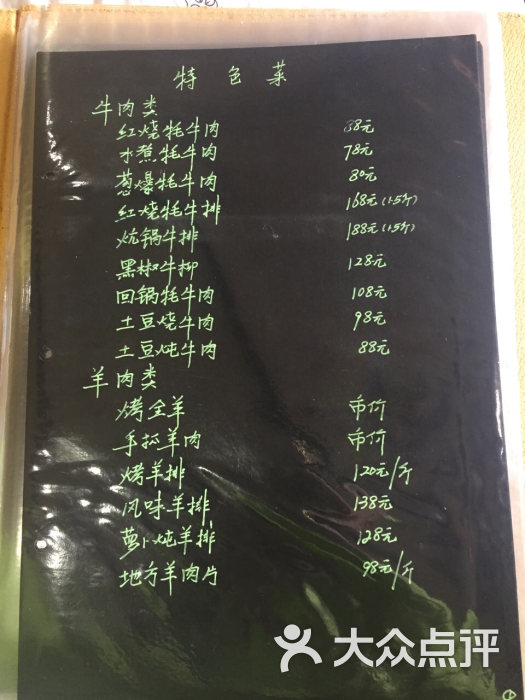 特色菜
牛肉类
红烧牦牛肉 88元
水煮牦牛肉 78元
葱爆牦牛肉 80元
红烧牦牛排 168元(1.5斤)
炕锅牛排 188元(1.5斤)
黑椒牛柳 128元
回锅牦牛肉 108元
土豆烧牛肉 98元
土豆炖牛肉 88元
羊肉类
烤全羊 市价
手抓羊肉 市价
烤羊排 120元/斤
风味羊排 138元
萝卜炖羊排 128元
地方羊肉片 98元/斤
大众点评